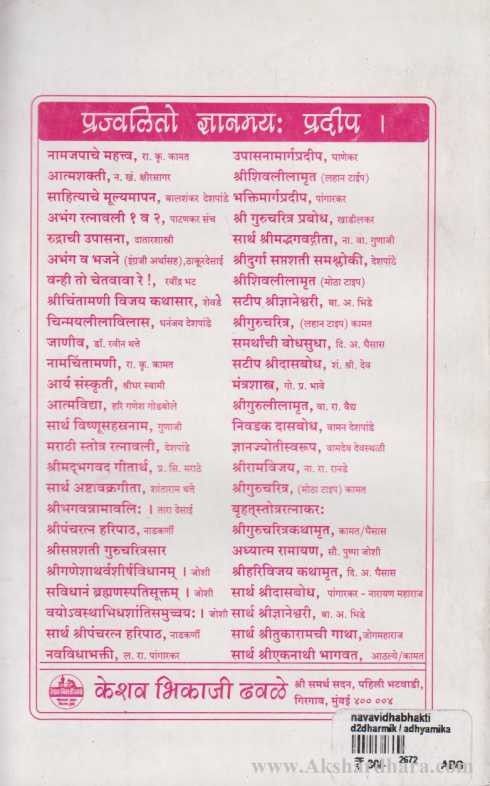 प्रज्वलितो ज्ञानमयः प्रदीप ।
नामजपाचे महत्त्व, रा. कृ. कामत
आत्मशक्ती, न. खं. क्षीरसागर
साहित्याचे मूल्यमापन, बालशंकर देशपांडे
अभंग रत्नावली १ व २, पाटणकर संच
रुद्राची उपासना, दातारशास्त्री
अभंग व भजने (इंग्रजी अर्थासह), ठाकूरदेसाई
वन्ही तो चेतवावा रे !, रवींद्र भट
श्रीचिंतामणी विजय कथासार, शेवडे
चिन्मयलीलाविलास, धनंजय देशपांडे
जाणीव, डॉ. रवीन थत्ते
नामचिंतामणी, रा. कृ. कामत
आर्य संस्कृती, श्रीधर स्वामी
आत्मविद्या, हरि गणेश गोडबोले
सार्थ विष्णूसहस्रनाम, गुणाजी
मराठी स्तोत्र रत्नावली, देशपांडे
श्रीमद्भगवद गीतार्थ, प्र. सि. मराठे
सार्थ अष्टावक्रगीता, शांताराम थत्ते
श्रीभगवन्नामावलिः । तारा देसाई
श्रीपंचरत्न हरिपाठ, नाडकर्णी
श्रीसप्तशती गुरुचरित्रसार
श्रीगणेशाथर्वशीर्षविधानम् । जोशी
सविधानं ब्रह्मणस्पतिसूक्तम् । जोशी
वयोऽवस्थाभिधशांतिसमुच्चयः । जोशी
सार्थ श्रीपंचरत्न हरिपाठ, नाडकर्णी
नवविधाभक्ती, ल. रा. पांगारकर
उपासनामार्गप्रदीप, पाणेकर
श्रीशिवलीलामृत (लहान टाईप)
भक्तिमार्गप्रदीप, पांगारकर
श्री गुरुचरित्र प्रबोध, खाडीलकर
सार्थ श्रीमद्भगवद्गीता, ना. वा. गुणाजी
श्रीदुर्गा सप्तशती समश्लोकी, देशपांडे
श्रीशिवलीलामृत (मोठा टाइप)
सटीप श्रीज्ञानेश्वरी, बा. अ. भिडे
श्रीगुरुचरित्र, (लहान टाइप) कामत
समर्थांची बोधसुधा, दि. अ. घैसास
सटीप श्रीदासबोध, शं. श्री. देव
मंत्रशास्त्र, गो. प्र. भावे
श्रीगुरुलीलामृत, वा. रा. वैद्य
निवडक दासबोध, वामन देशपांडे
ज्ञानज्योतीस्वरूप, वामदेव देवस्थळी
श्रीरामविजय, ना. रा. रानडे
श्रीगुरुचरित्र, (मोठा टाइप) कामत
बृहत्स्तोत्ररत्नाकरः
श्रीगुरुचरित्रकथामृत, कामत/घैसास
अध्यात्म रामायण, सौ. पुष्पा जोशी
श्रीहरिविजय कथामृत, दि. अ. घैसास
सार्थ श्रीदासबोध, पांगारकर - नारायण महाराज
सार्थ श्रीज्ञानेश्वरी, बा. अ. भिडे
सार्थ श्रीतुकारामची गाथा, जोगमहाराज
सार्थ श्रीएकनाथी भागवत, आठल्ये/कामत
केशव भिकाजी ढवळे
श्री समर्थ सदन, पहिली भटवाडी,
गिरगाव, मुंबई ४०० ००४
navavidhabhakti
d2dharmik / adhyamika
₹ 30/- 2672 ABG
www.Akshardhara.com